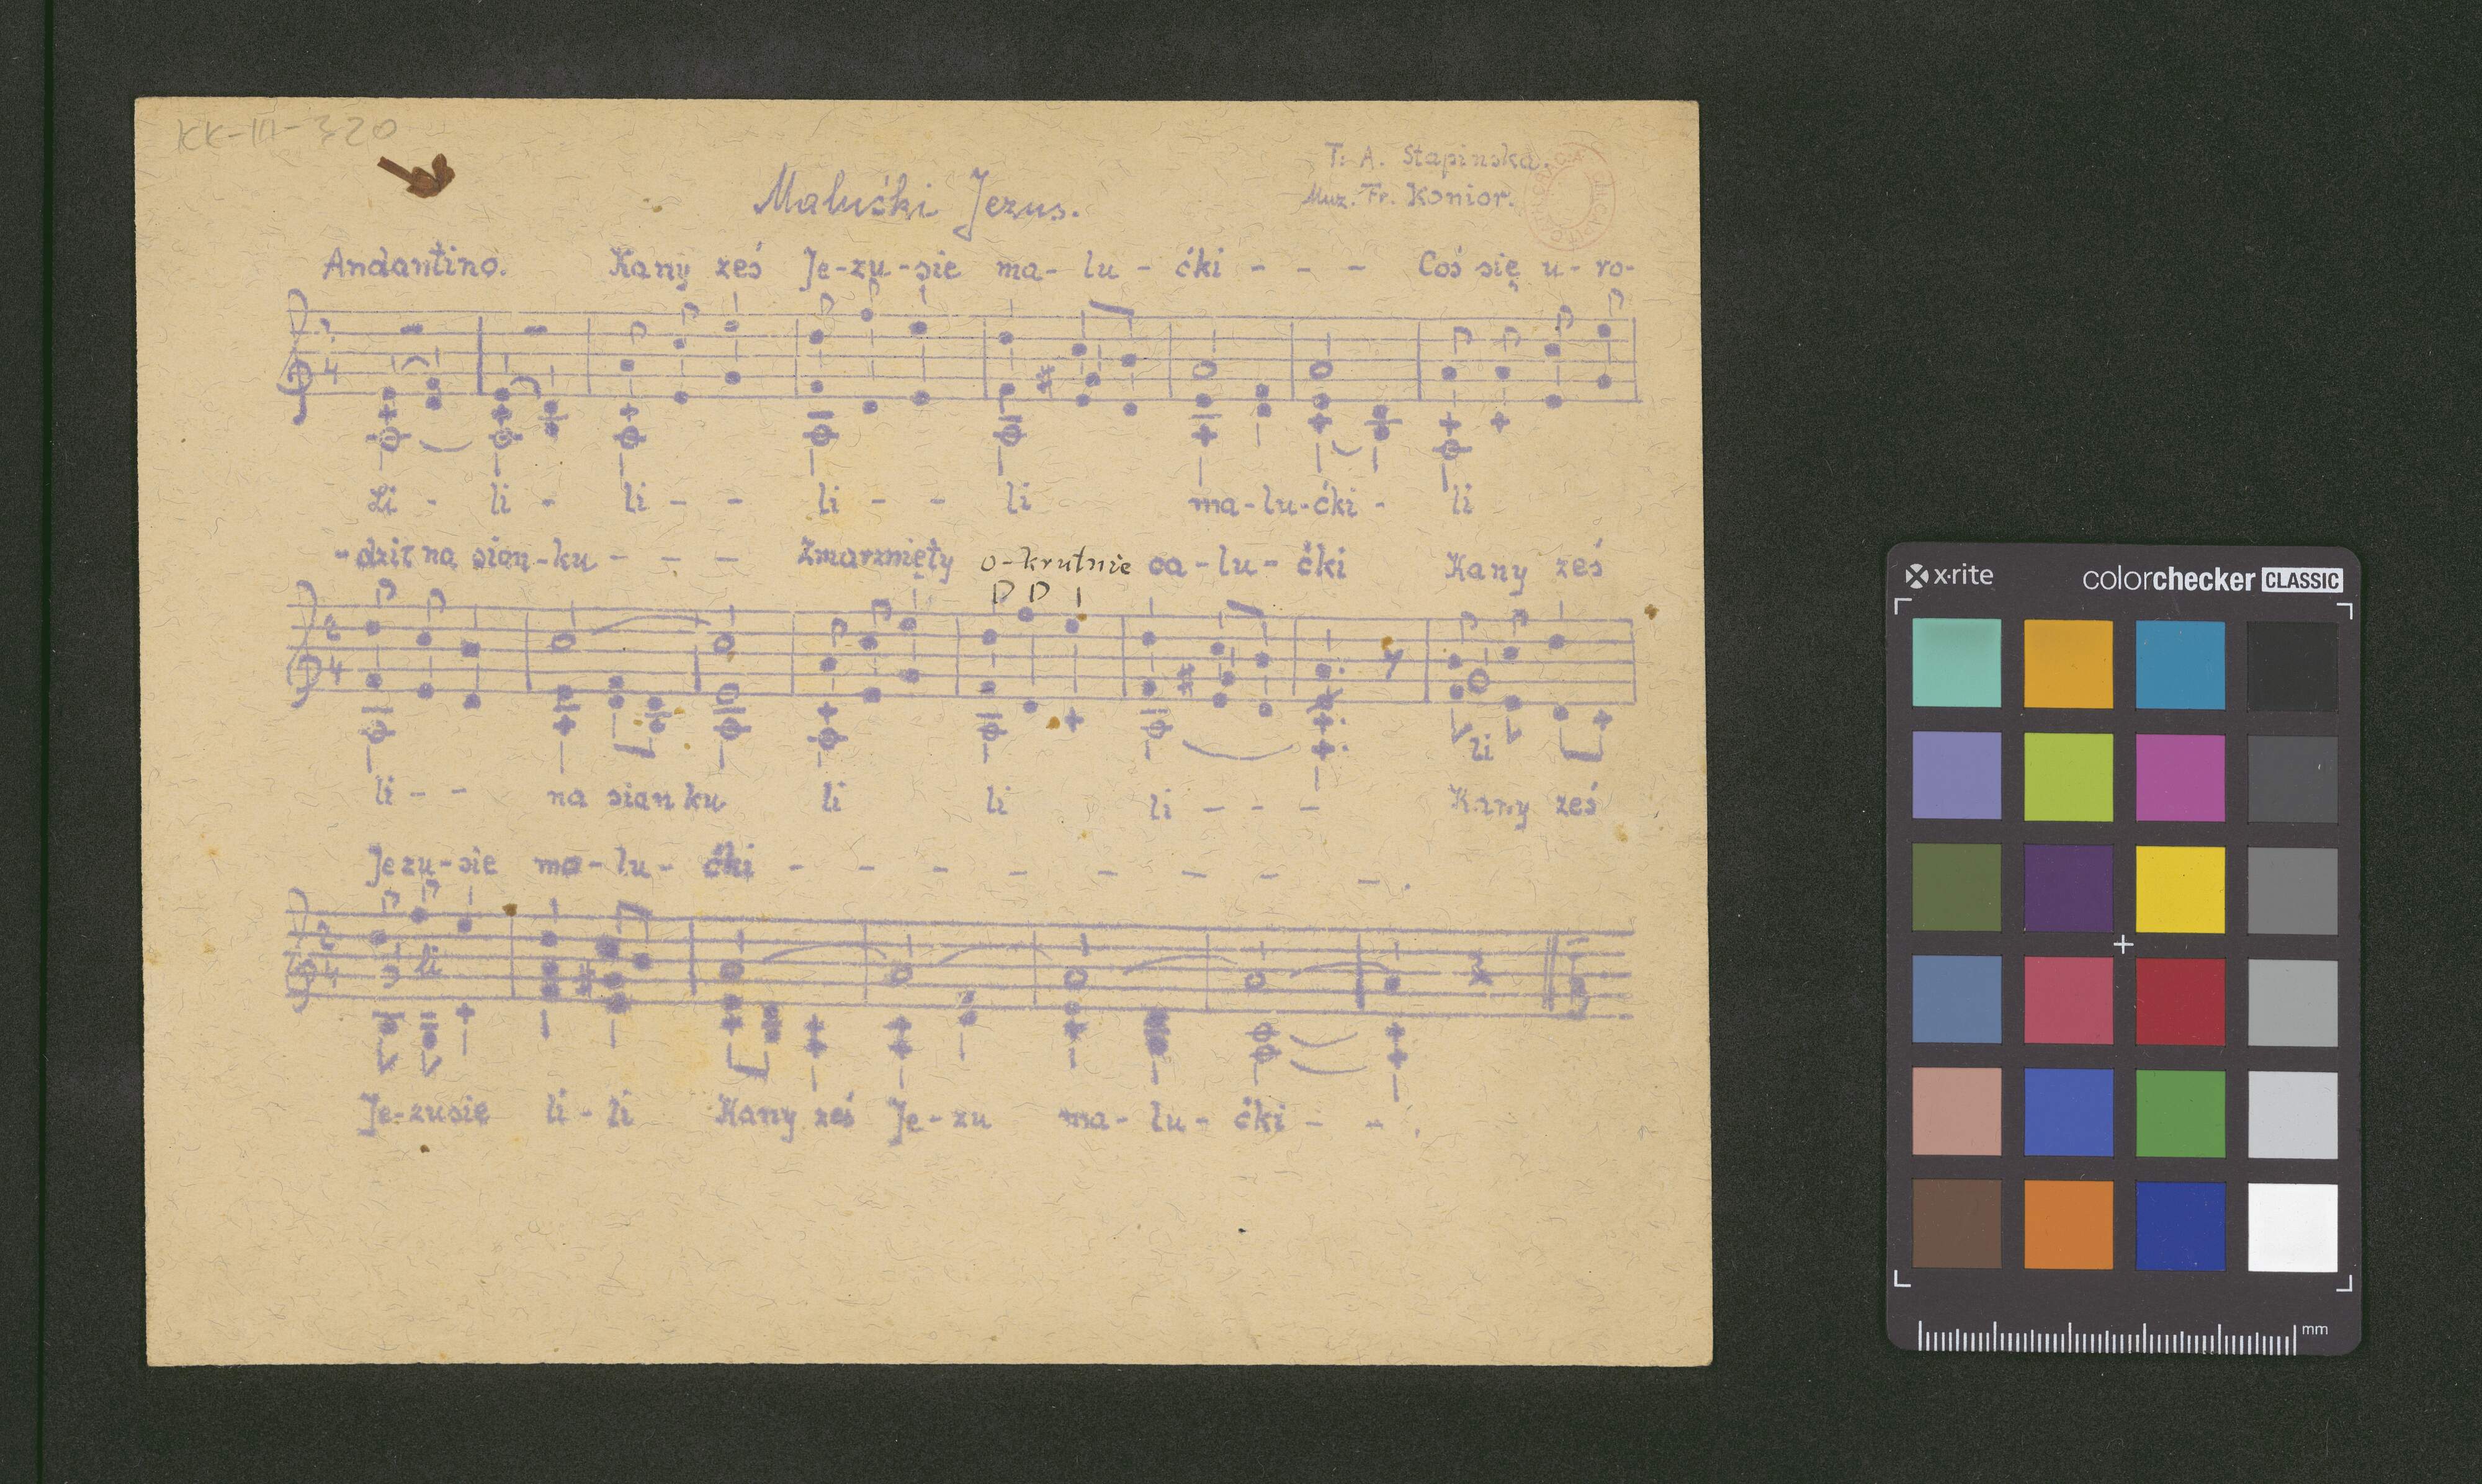 KK-III-320
T. A. Stapinska.
Muz. Fr. Konior.
Maluśki Jezus.
Andantino. Kany ześ Je-zu-sie ma-lu-ćki - - - Coś się u-ro-
2 4
Li - li - li - - li - - li ma-lu-ćki - li
-dził na sian-ku - - - Zmarznięty o-krutnie ca-lu-ćki Kany ześ
2 4
li
li - - na sianku li li li - - - Kany ześ
Jezu-sie ma-lu-ćki - - - - - - - - -.
2 4 li
Je-zusie li-li Kany ześ Je-zu ma-lu-ćki - - .
x-rite colorchecker CLASSIC
mm